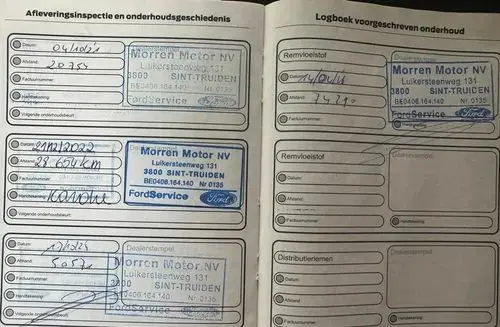 Afleveringsinspectie en onderhoudsgeschiedenis
Datum: 04/10/21
Afstand: 20.754
Factuurnummer:
Handtekening:
Volgende onderhoudsbeurt:
Dealerstempel
Morren Motor NV
Luikersteenweg 131
3800 SINT-TRUIDEN
BE0406.164.140 Nr. 0135
FordService Ford
Datum: 21/12/2022
Afstand: 28 654 km
Factuurnummer:
Handtekening:
Volgende onderhoudsbeurt:
Morren Motor NV
Luikersteenweg 131
3800 SINT-TRUIDEN
BE0406.164.140 Nr 0135
FordService Ford
Datum:
Afstand:
Factuurnummer:
Handtekening:
Volgende onderhoudsbeurt:
Dealerstempel
Morren Motor NV
Luikersteenweg 131
SINT-TRUIDEN
0406.164.140 Nr. 0135
FordService
Logboek voorgeschreven onderhoud
Remvloeistof
Datum:
Afstand:
Factuurnummer:
Handtekening:
Morren Motor NV
Luikersteenweg 131
3800 SINT-TRUIDEN
BE0406.164.140 Nr. 0135
FordService Ford
Remvloeistof
Datum:
Afstand:
Factuurnummer:
Dealerstempel
Handtekening:
Distributieriemen
Datum:
Afstand:
Factuurnummer:
Dealerstempel
Handtekening: